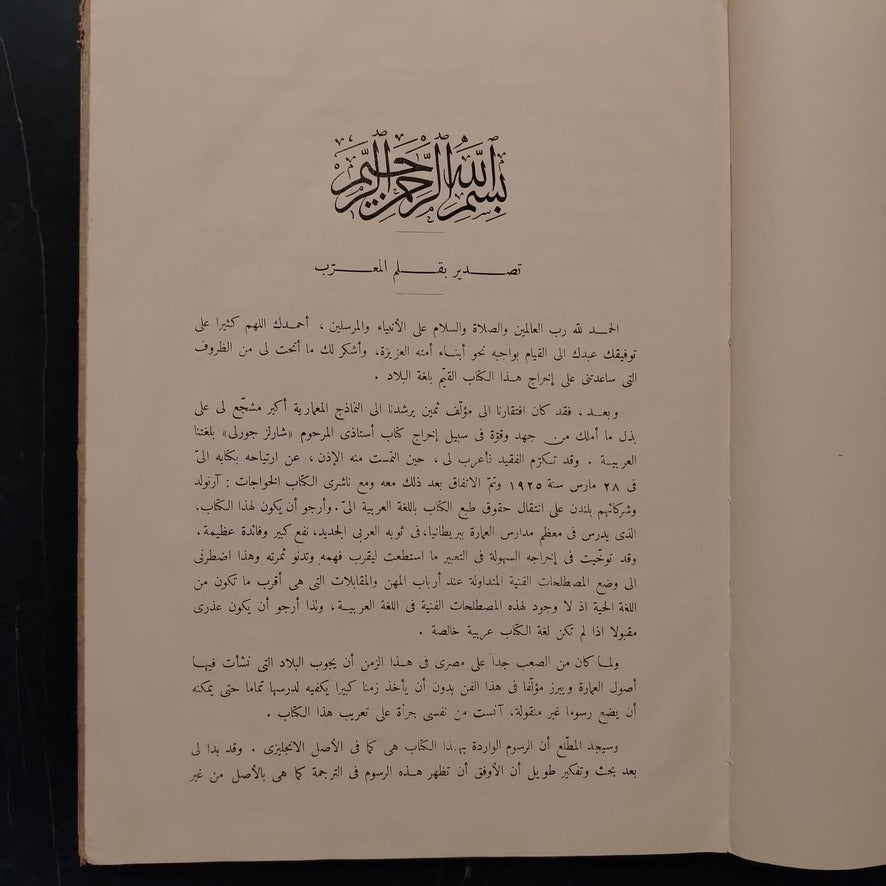 بسم الله الرحمن الرحيم
تصدير بقلم المعرّب
الحمد لله رب العالمين والصلاة والسلام على الأنبياء والمرسلين ، أحمدك اللهم كثيرا على
توفيقك عبدك الى القيام بواجبه نحو أبناء أمته العزيزة، وأشكر لك ما أتحت لى من الظروف
التى ساعدتنى على إخراج هذا الكتاب القيّم بلغة البلاد .
وبعد ، فقد كان افتقارنا الى مؤلّف ثمين يرشدنا الى النماذج المعمارية أكبر مشجّع لى على
بذل ما أملك من جهد وقوّة فى سبيل إخراج كتاب أستاذى المرحوم «شارلز جورلى» بلغتنا
العربية . وقد تكرّم الفقيد فأعرب لى ، حين التمست منه الإذن ، عن ارتياحه بكتابه الىّ
فى ٢٨ مارس سنة ١٩٢٥ وتمّ الاتفاق بعد ذلك معه ومع ناشرى الكتاب الخواجات : آرنولد
وشركائهم بلندن على انتقال حقوق طبع الكتاب باللغة العربية الىّ . وأرجو أن يكون لهذا الكتاب،
الذى يدرس فى معظم مدارس العمارة ببريطانيا، فى ثوبه العربى الجديد، نفع كبير وفائدة عظيمة .
وقد توخّيت فى إخراجه السهولة فى التعبير ما استطعت ليقرب فهمه وتدنو ثمرته وهذا اضطرنى
الى وضع المصطلحات الفنية المتداولة عند أرباب المهن والمقابلات التى هى أقرب ما تكون من
اللغة الحية اذ لا وجود لهذه المصطلحات الفنية فى اللغة العربية ، ولذا أرجو أن يكون عذرى
مقبولا اذا لم تكن لغة الكتاب عربية خالصة .
ولما كان من الصعب جدا على مصرى فى هذا الزمن أن يجوب البلاد التى نشأت فيها
أصول العمارة ويبرز مؤلّفا فى هذا الفن بدون أن يأخذ زمنا كبيرا يكفيه لدرسها تماما حتى يمكنه
أن يضع رسوما غير منقولة، آنست من نفسى جرأة على تعريب هذا الكتاب .
وسيجد المطّلع أن الرسوم الواردة بهذا الكتاب هى كما فى الأصل الانجليزى . وقد بدا لى
بعد بحث وتفكير طويل أن الأوفق أن تظهر هذه الرسوم فى الترجمة كما هى بالأصل من غير